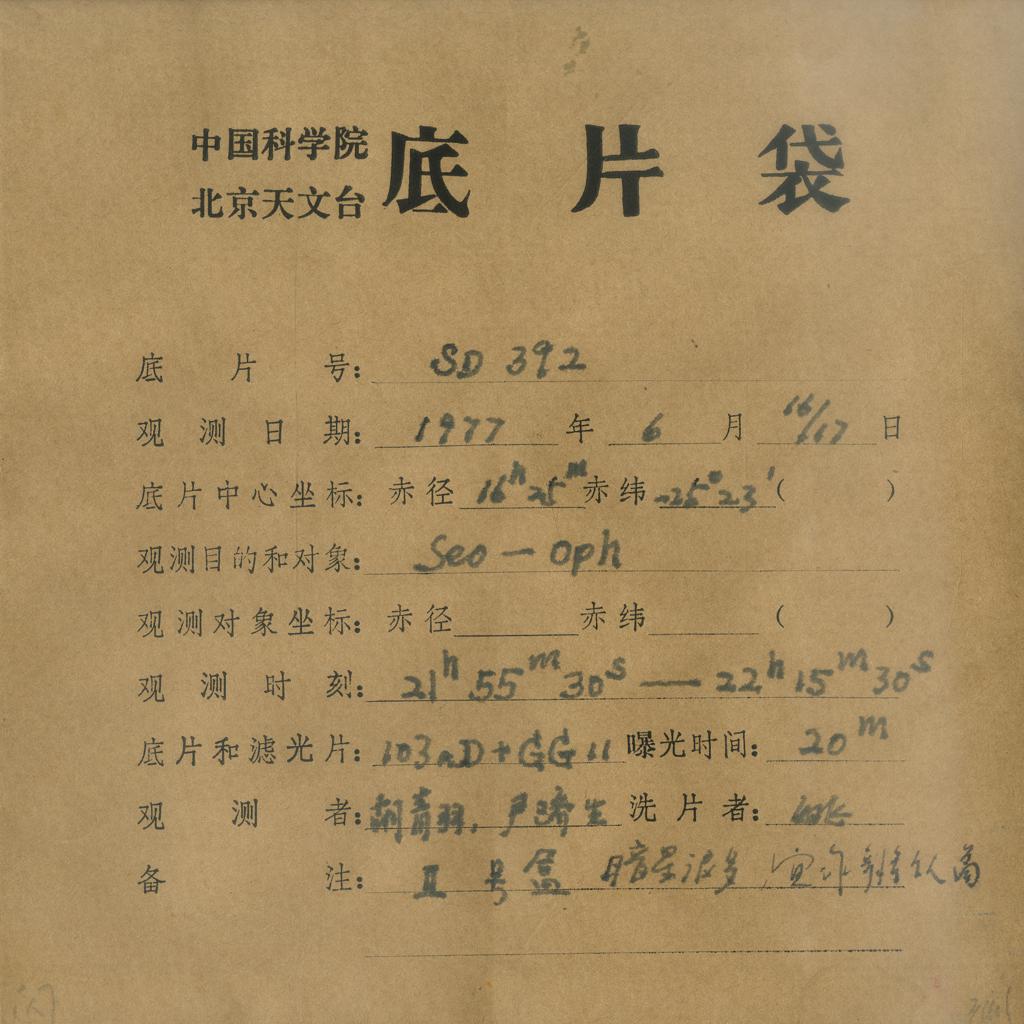 中国科学院
北京天文台
底片袋
底片号: SD 392
观测日期: 1977 年 6 月 16/17 日
底片中心坐标: 赤径 16h 25m 赤纬 -25°23′ ( )
观测目的和对象: Sco — Oph
观测对象坐标: 赤径 赤纬 ( )
观测时刻: 21h 55m 30s — 22h 15m 30s
底片和滤光片: 103aD + GG 11 曝光时间: 20m
观测者: 胡青羽, 尹济生 洗片者:
备注: II 号盒 暗星很多